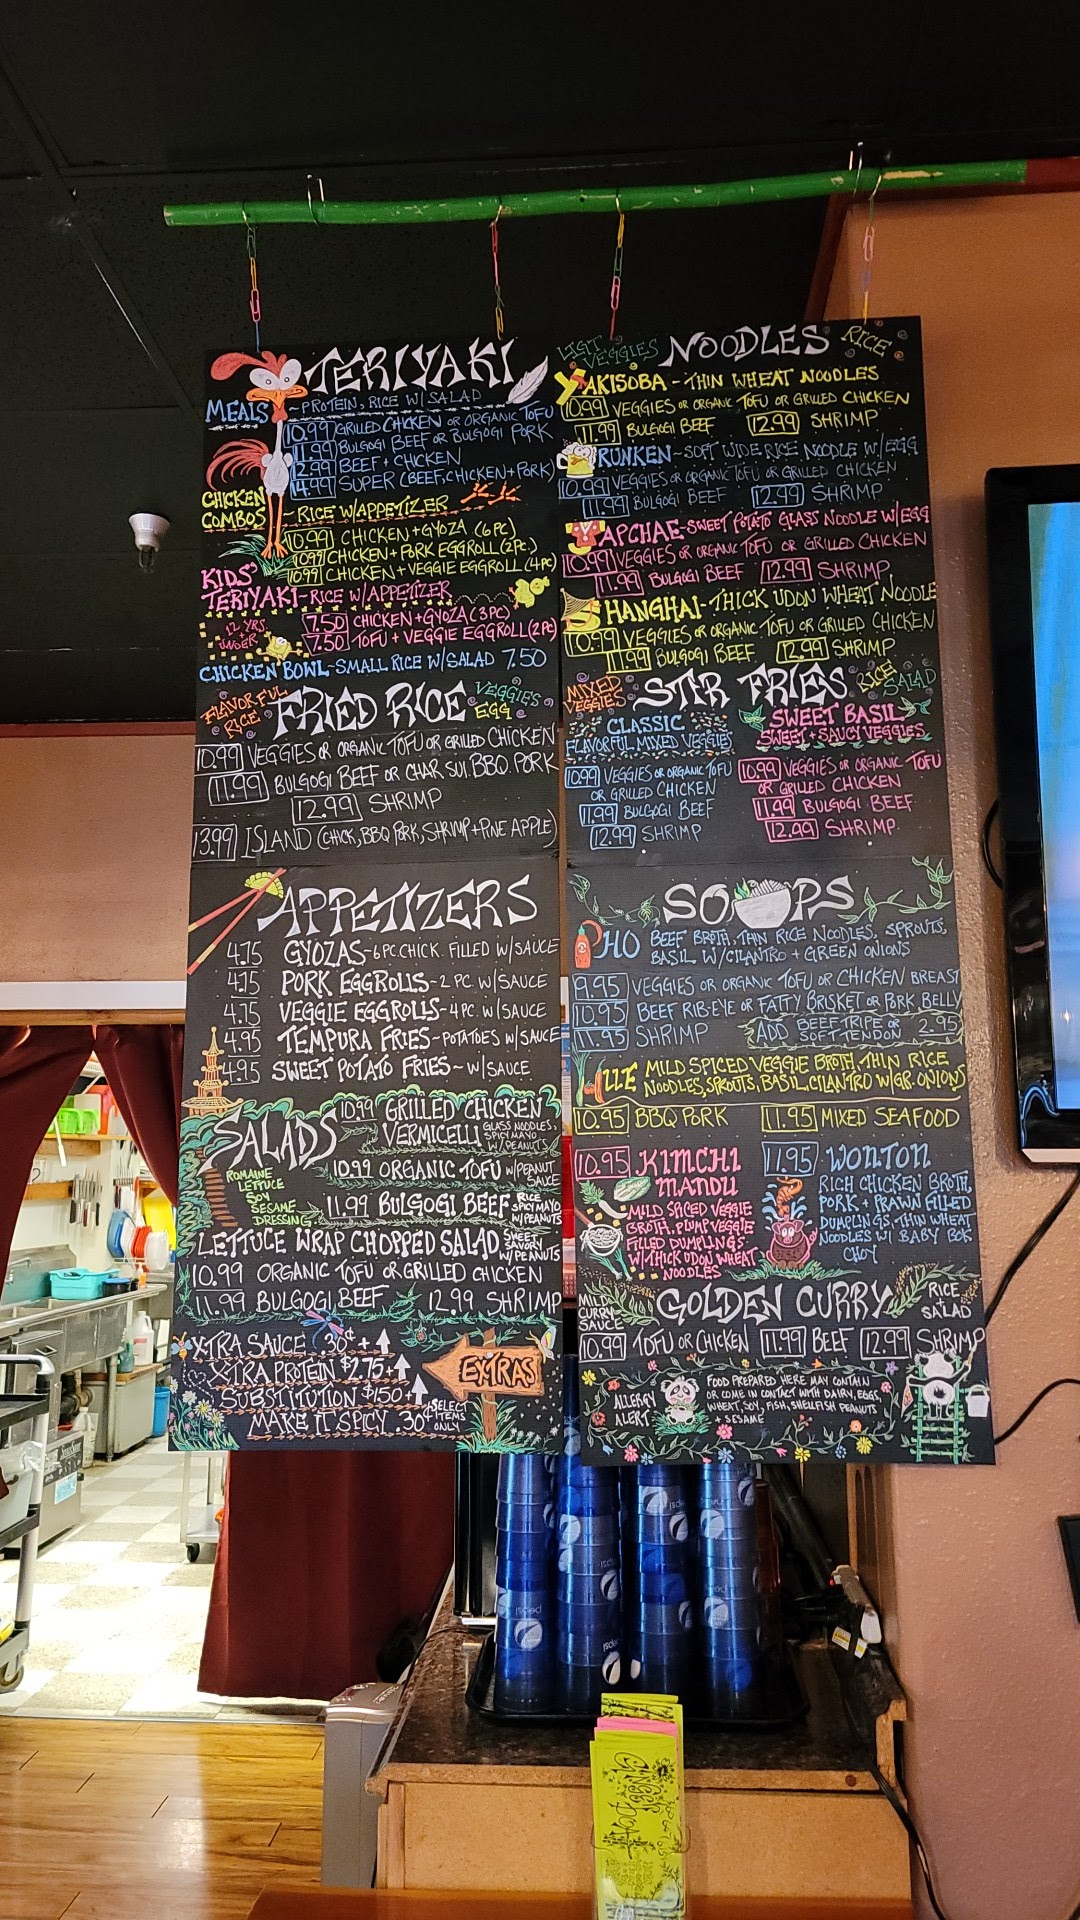 TERIYAKI
MEALS - PROTEIN, RICE W/ SALAD
10.99 GRILLED CHICKEN OR ORGANIC TOFU
11.99 BULGOGI BEEF OR BULGOGI PORK
12.99 BEEF + CHICKEN
14.99 SUPER (BEEF, CHICKEN + PORK)
CHICKEN COMBOS - RICE W/APPETIZER
10.99 CHICKEN + GYOZA (6 PC)
10.99 CHICKEN + PORK EGGROLL (2 PC.)
10.99 CHICKEN + VEGGIE EGGROLL (4 PC)
KIDS'
TERIYAKI - RICE W/APPETIZER
12 YRS UNDER
7.50 CHICKEN + GYOZA (3 PC)
7.50 TOFU + VEGGIE EGGROLL (2 PC)
CHICKEN BOWL - SMALL RICE W/SALAD 7.50
FLAVORFUL RICE FRIED RICE VEGGIE'S EGG
10.99 VEGGIES OR ORGANIC TOFU OR GRILLED CHICKEN
11.99 BULGOGI BEEF OR CHAR SUI BBQ PORK
12.99 SHRIMP
13.99 ISLAND (CHICK, BBQ PORK, SHRIMP + PINE APPLE)
APPETIZERS
4.75 GYOZAS - 6 PC. CHICK. FILLED W/SAUCE
4.75 PORK EGGROLLS - 2 PC. W/SAUCE
4.75 VEGGIE EGGROLLS - 4 PC. W/SAUCE
4.95 TEMPURA FRIES - POTATOES W/SAUCE
4.95 SWEET POTATO FRIES - W/SAUCE
SALADS
ROMAINE
LETTUCE
SOY
SESAME
DRESSING
10.99 GRILLED CHICKEN
VERMICELLI GLASS NOODLES, SPICY MAYO W/PEANUTS
10.99 ORGANIC TOFU W/PEANUT SAUCE
11.99 BULGOGI BEEF RICE SPICY MAYO W/PEANUTS
LETTUCE WRAP CHOPPED SALAD SWEET SAVORY W/PEANUTS
10.99 ORGANIC TOFU OR GRILLED CHICKEN
11.99 BULGOGI BEEF 12.99 SHRIMP
X-TRA SAUCE .30¢ +
X-TRA PROTEIN $2.75 +
SUBSTITUTION $1.50 +
MAKE IT SPICY .30¢ SELECT ITEMS ONLY
EXTRAS
LIGT VEGGIES NOODLES RICE
YAKISOBA - THIN WHEAT NOODLES
10.99 VEGGIES OR ORGANIC TOFU OR GRILLED CHICKEN
11.99 BULGOGI BEEF 12.99 SHRIMP
DRUNKEN - SOFT WIDE RICE NOODLE W/EGG
10.99 VEGGIES OR ORGANIC TOFU OR GRILLED CHICKEN
11.99 BULGOGI BEEF 12.99 SHRIMP
JAPCHAE - SWEET POTATO GLASS NOODLE W/EGG
10.99 VEGGIES OR ORGANIC TOFU OR GRILLED CHICKEN
11.99 BULGOGI BEEF 12.99 SHRIMP
SHANGHAI - THICK UDON WHEAT NOODLE
10.99 VEGGIES OR ORGANIC TOFU OR GRILLED CHICKEN
11.99 BULGOGI BEEF 12.99 SHRIMP
MIXED VEGGIES STIR FRIES RICE SALAD
CLASSIC
FLAVORFUL MIXED VEGGIES
10.99 VEGGIES OR ORGANIC TOFU
OR GRILLED CHICKEN
11.99 BULGOGI BEEF
12.99 SHRIMP
SWEET BASIL
SWEET + SAUCY VEGGIES
10.99 VEGGIES OR ORGANIC TOFU
OR GRILLED CHICKEN
11.99 BULGOGI BEEF
12.99 SHRIMP
SOUPS
PHO BEEF BROTH, THIN RICE NOODLES, SPROUTS,
BASIL W/CILANTRO + GREEN ONIONS
9.95 VEGGIES OR ORGANIC TOFU OR CHICKEN BREAST
10.95 BEEF RIB-EYE OR FATTY BRISKET OR PORK BELLY
11.95 SHRIMP ADD BEEF TRIPE OR SOFT TENDON 2.95
HUE MILD SPICED VEGGIE BROTH, THIN RICE
NOODLES, SPROUTS, BASIL, CILANTRO W/GR. ONIONS
10.95 BBQ PORK 11.95 MIXED SEAFOOD
10.95 KIMCHI
MANDU
MILD SPICED VEGGIE
BROTH, PLUMP VEGGIE
FILLED DUMPLINGS
W/THICK UDON WHEAT
NOODLES
11.95 WONTON
RICH CHICKEN BROTH
PORK + PRAWN FILLED
DUMPLINGS, THIN WHEAT
NOODLES W/ BABY BOK
CHOY
MILD CURRY SAUCE GOLDEN CURRY RICE & SALAD
10.99 TOFU OR CHICKEN 11.99 BEEF 12.99 SHRIMP
ALLERGY
ALERT
FOOD PREPARED HERE MAY CONTAIN
OR COME IN CONTACT WITH DAIRY, EGGS,
WHEAT, SOY, FISH, SHELLFISH PEANUTS
+ SESAME
pepsi